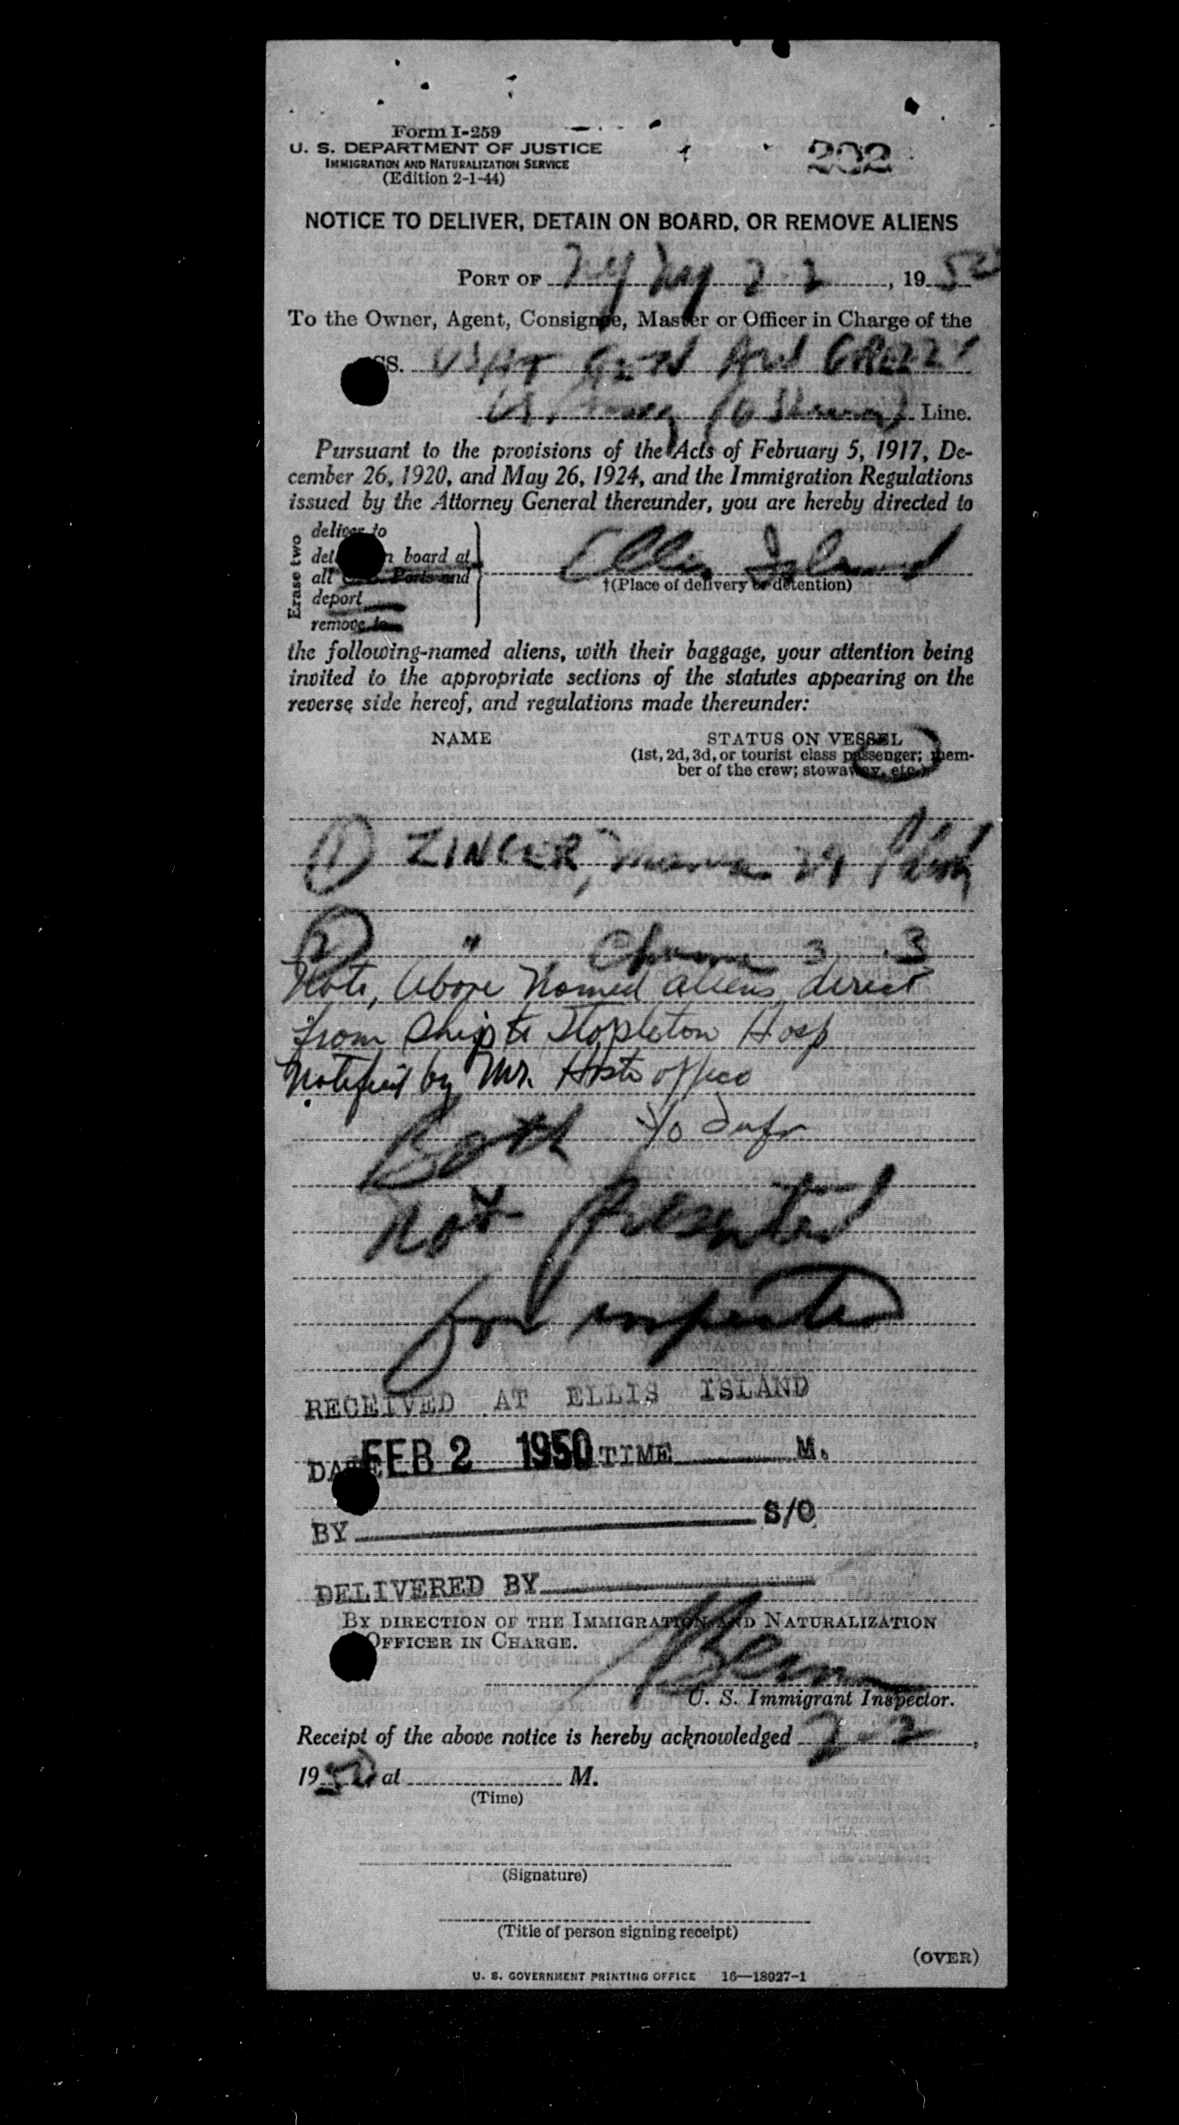 Form I-259
U. S. DEPARTMENT OF JUSTICE
IMMIGRATION AND NATURALIZATION SERVICE
(Edition 2-1-44)
202
NOTICE TO DELIVER, DETAIN ON BOARD, OR REMOVE ALIENS
PORT OF NY NY 2-2, 1950
To the Owner, Agent, Consignee, Master or Officer in Charge of the
SS. USAT GEN
Line.
Pursuant to the provisions of the Acts of February 5, 1917, De-
cember 26, 1920, and May 26, 1924, and the Immigration Regulations
issued by the Attorney General thereunder, you are hereby directed to
Erase two
deliver to
board at
all Ports and
deport
remove to
Ellis Island
†(Place of delivery or detention)
the following-named aliens, with their baggage, your attention being
invited to the appropriate sections of the statutes appearing on the
reverse side hereof, and regulations made thereunder:
NAME STATUS ON VESSEL
(1st, 2d, 3d, or tourist class passenger; mem-
ber of the crew; stowaway, etc.)
1 ZINGER, 29
2 " 3 3
Note, Above Named aliens direct
from Ship to Stapleton Hosp
Notified by Mr. office
Both
not presented
for
RECEIVED AT ELLIS ISLAND
DATE FEB 2 1950 TIME M.
BY S/O
DELIVERED BY
BY DIRECTION OF THE IMMIGRATION AND NATURALIZATION
OFFICER IN CHARGE.
U. S. Immigrant Inspector.
Receipt of the above notice is hereby acknowledged 2-2,
1950, at M.
(Time)
(Signature)
(Title of person signing receipt)
(OVER)
U. S. GOVERNMENT PRINTING OFFICE 16—18027-1